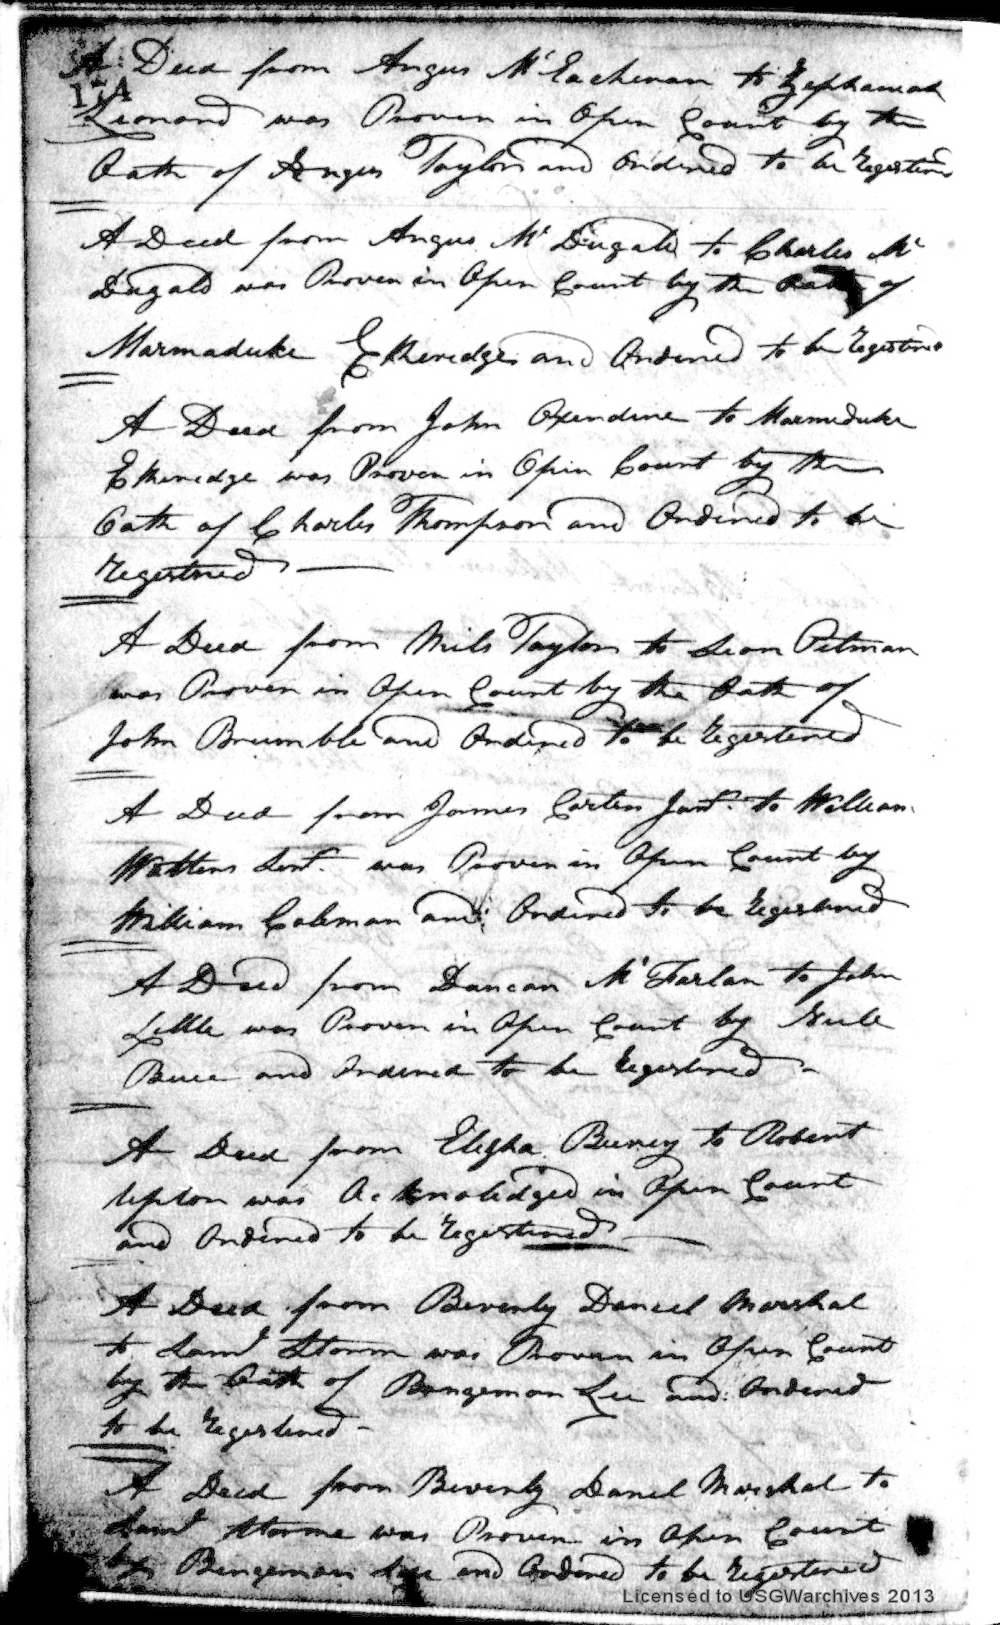 A Deed from Angus Mc Eachenan to Zephaniah
17A
Leonard was Proven in Open Court by the
Oath of Angus Taylor and Ordered to be Registered
A Deed from Angus Mc Dugald to Charles Mc
Dugald was Proven in Open Court by the Oath of
Marmaduke Etheredge and Ordered to be Registered
A Deed from John Oxendine to Marmeduke
Etheredge was Proven in Open Court by the
Oath of Charles Thompson and Ordered to be
Registered
A Deed from Mils Taylor to Pitman
was Proven in Open Court by the Oath of
John Brumble and Ordered to be Registered
A Deed from James Carter Junr. to William
Watters Senr. was Proven in Open Court by
William Coleman and Ordered to be Registered
A Deed from Duncan Mc Farlan to John
Little was Proven in Open Court by
and Ordered to be Registered
A Deed from Elesha to Robert
Upton was Acknoledged in Open Court
and Ordered to be Registered
A Deed from Beverly Daniel Marshal
to Saml Storm was Proven in Open Court
by the Oath of Bengeman Lee and Ordered
to be Registered
A Deed from Beverly Daniel Marshal to
Saml Storme was Proven in Open Court
by Bengeman Lee and Ordered to be Registered
Licensed to USGWarchives 2013